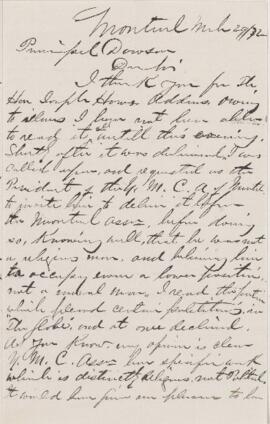 Montreal Mch 29/72
Principal Dawson
Dr Sir
I thank you for the
Hon Joseph Howe Address, owing
to illness I have not been able
to read it untill this evening.
Shortly after it was delivered I was
called upon, and requested as the
President of the Y. M. C. A. of Montreal
to invite him to deliver it before
the Montreal Assn before doing
so, knowing well, that he was not
a religious man, and believing him
to occupy even a lower position,
not a moral man, I read the lecture
which placed certain
the Globe, and at once declined.
As you know my opinion is clear
Y. M. C. Assn has specific work
which is distinctly religious, not Political
it would have given me pleasure to hear